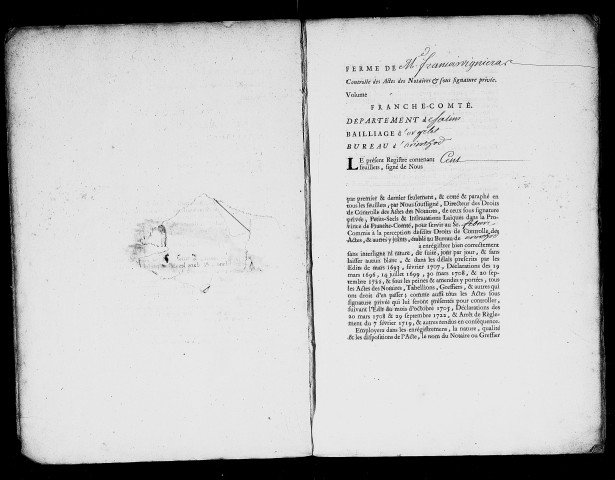 FERME DE Me. francois vigniera
Controlle des Actes des Notaires & sous signature privée.
Volume
FRANCHE-COMTÉ.
DEPARTEMENT de Salins
BAILLIAGE d'orgelet
BUREAU d'
LE présent Registre contenant Cent
feuillets, signé de Nous
par premier & dernier seulement, & cotté & paraphé en
tous les feuillets, par Nous soussigné, Directeur des Droits
de Controlle des Actes des Notaires, de ceux sous signature
privée, Petits-Scels & Insinuations Laïques dans la Pro-
vince de Franche-Comté, pour servir au Sr.
Commis à la perception desdits Droits de Controlle des
Actes, & autres y joints, établi au Bureau de
à enregistrer bien correctement
sans interligne ni rature, de suite, jour par jour, & sans
laisser aucun blanc, & dans les délais prescrits par les
Edits de mars 1693, février 1707, Déclarations des 19
mars 1696, 14 juillet 1699, 20 mars 1708, & 20 sep-
tembre 1722, & sous les peines & amendes y portées, tous
les Actes des Notaires, Tabellions, Greffiers, & autres qui
ont droit d'en passer; comme aussi tous les Actes sous
signature privée qui lui seront présentés pour controller,
suivant l'Edit du mois d'octobre 1705, Déclarations des
20 mars 1708 & 29 septembre 1722, & Arrêt de Règle-
ment du 7 février 1719, & autres rendus en conséquence.
Employera dans les enregistremens, la nature, qualité
& les dispositions de l'Acte, le nom du Notaire ou Greffier